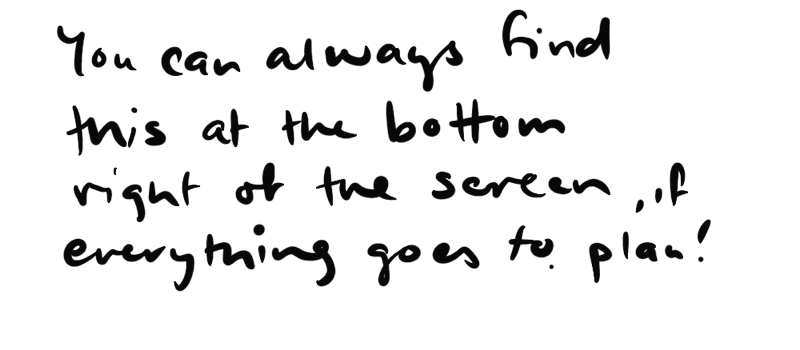 You can always find
this at the bottom
right of the screen, if
everything goes to plan!